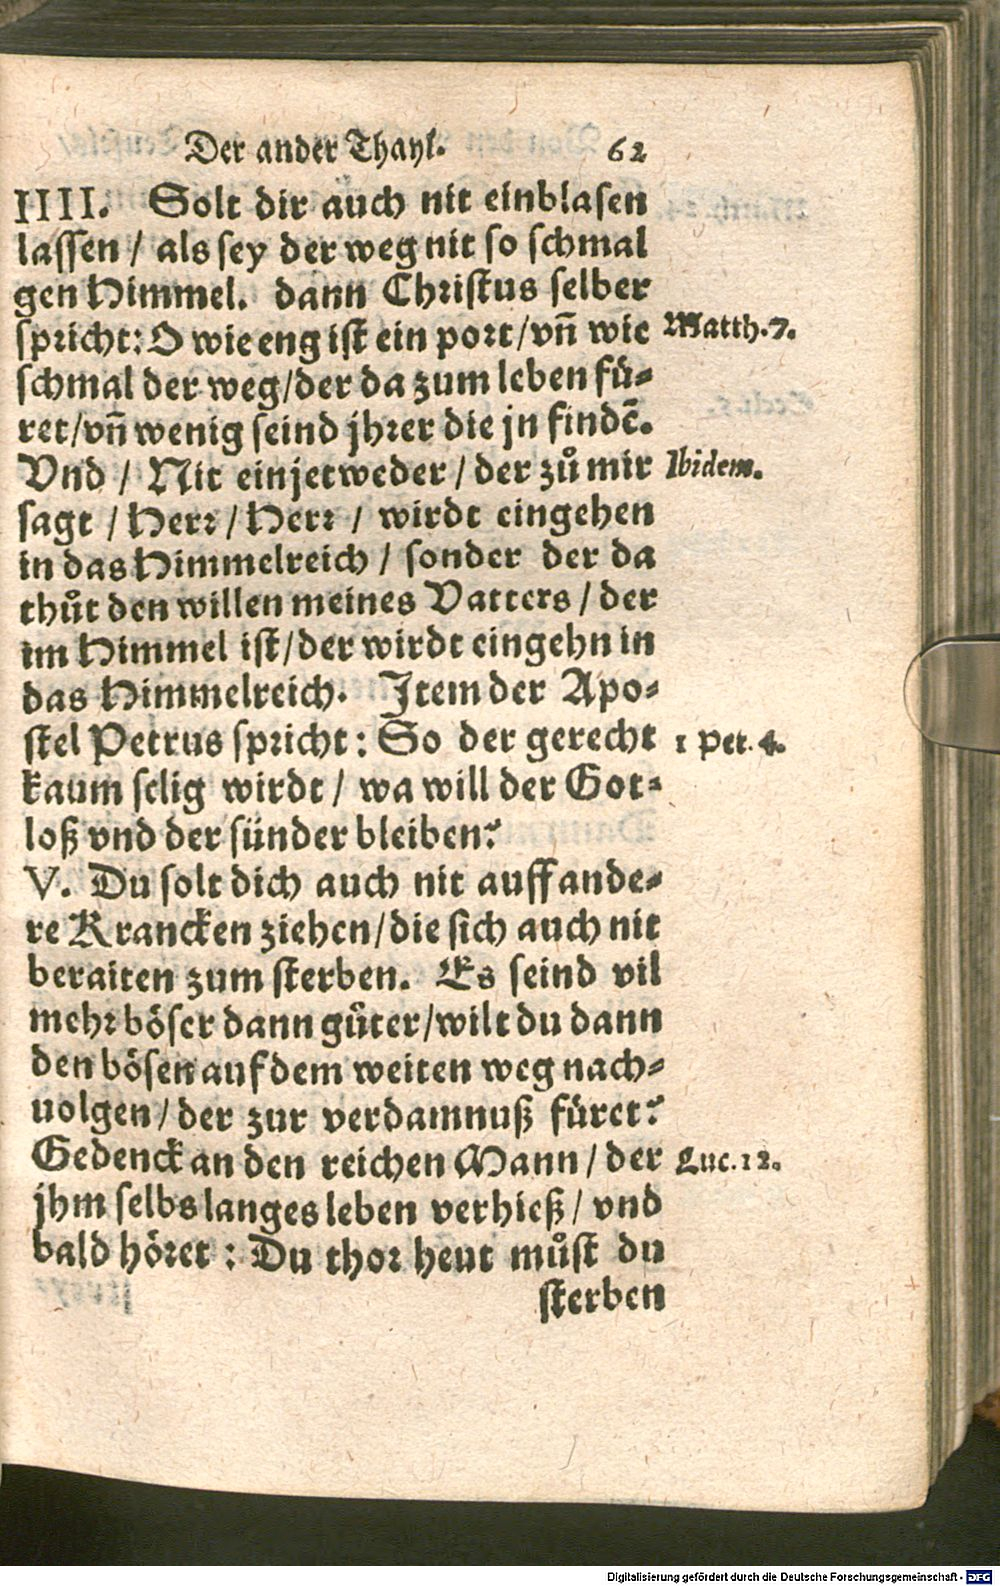 Der ander Thayl. 62
IIII. Solt dir auch nit einblasen
lassen / als sey der weg nit so schmal
gen Himmel. dann Christus selber
spricht: O wie eng ist ein port/vñ wie
Matth.7.
schmal der weg/der da zum leben fü-
ret/vñ wenig seind jhrer die jn findē.
Vnd / Nit ein jetweder / der zů mir
Ibidem.
sagt / Herr / Herr / wirdt eingehen
in das Himmelreich / sonder der da
thůt den willen meines Vatters / der
im Himmel ist/der wirdt eingehn in
das Himmelreich. Item der Apo-
stel Petrus spricht: So der gerecht
1 Pet. 4.
kaum selig wirdt / wa will der Got-
loß vnd der sünder bleiben?
V. Du solt dich auch nit auff ande-
re Krancken ziehen/die sich auch nit
beraiten zum sterben. Es seind vil
mehr böser dann gůter/wilt du dann
den bösen auf dem weiten weg nach-
uolgen/der zur verdamnuß füret?
Gedenck an den reichen Mann/der
Luc.12.
jhm selbs langes leben verhieß/vnd
bald höret: Du thor heut můst du
sterben
Digitalisierung gefördert durch die Deutsche Forschungsgemeinschaft - DFG